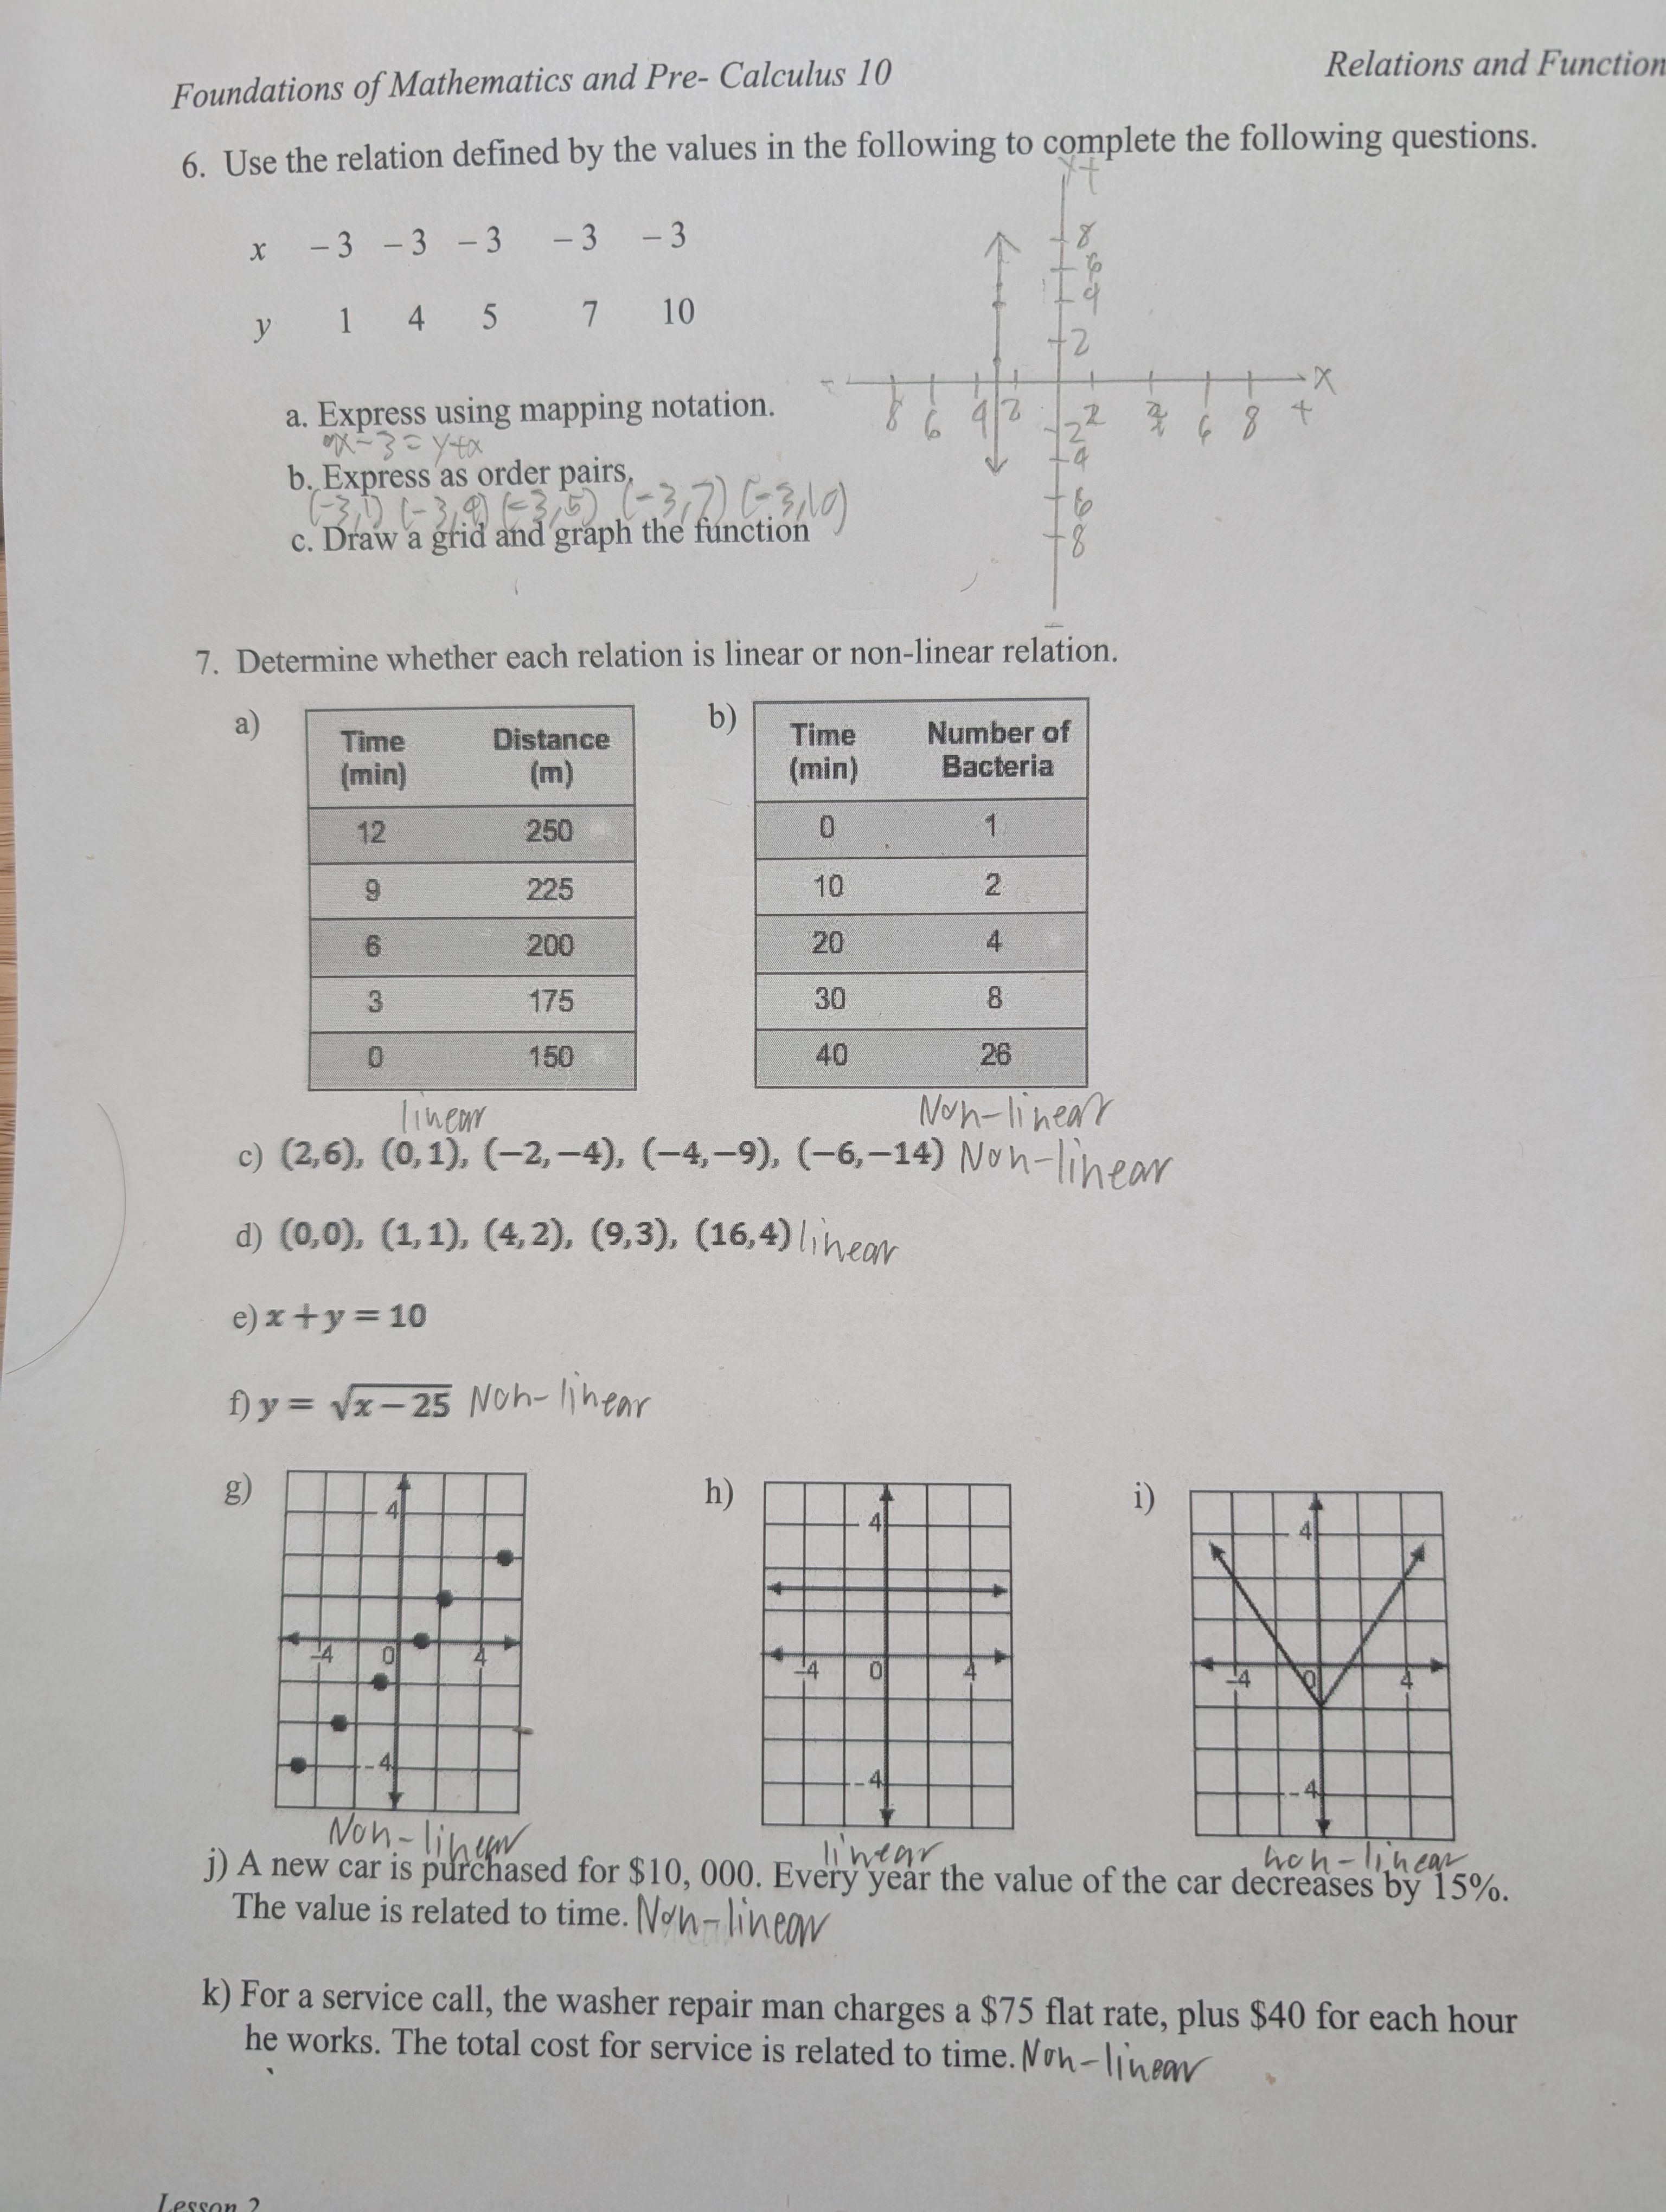 Foundations of Mathematics and Pre- Calculus 10 Relations and Function
6. Use the relation defined by the values in the following to complete the following questions.
x -3 -3 -3 -3 -3
y 1 4 5 7 10
a. Express using mapping notation.
b. Express as order pairs.
(-3,1) (-3,4) (-3,5) (-3,7) (-3,10)
c. Draw a grid and graph the function
8
6
4
2
X
8 6 4 2 2 6 8 +
2
4
6
8
7. Determine whether each relation is linear or non-linear relation.
a)
Time Distance
(min) (m)
12 250
9 225
6 200
3 175
0 150
linear
b)
Time Number of
(min) Bacteria
0 1
10 2
20 4
30 8
40 26
Non-linear
c) (2,6), (0,1), (−2,−4), (−4,−9), (−6,−14) Non-linear
d) (0,0), (1,1), (4,2), (9,3), (16,4) linear
e) x + y = 10
f) y = √x − 25 Non-linear
g)
4
-4 0 4
-4
Non-linear
h)
4
-4 0 4
-4
linear
i)
4
-4 0 4
-4
non-linear
j) A new car is purchased for $10, 000. Every year the value of the car decreases by 15%.
The value is related to time. Non-linear
k) For a service call, the washer repair man charges a $75 flat rate, plus $40 for each hour
he works. The total cost for service is related to time. Non-linear
Lesson 2